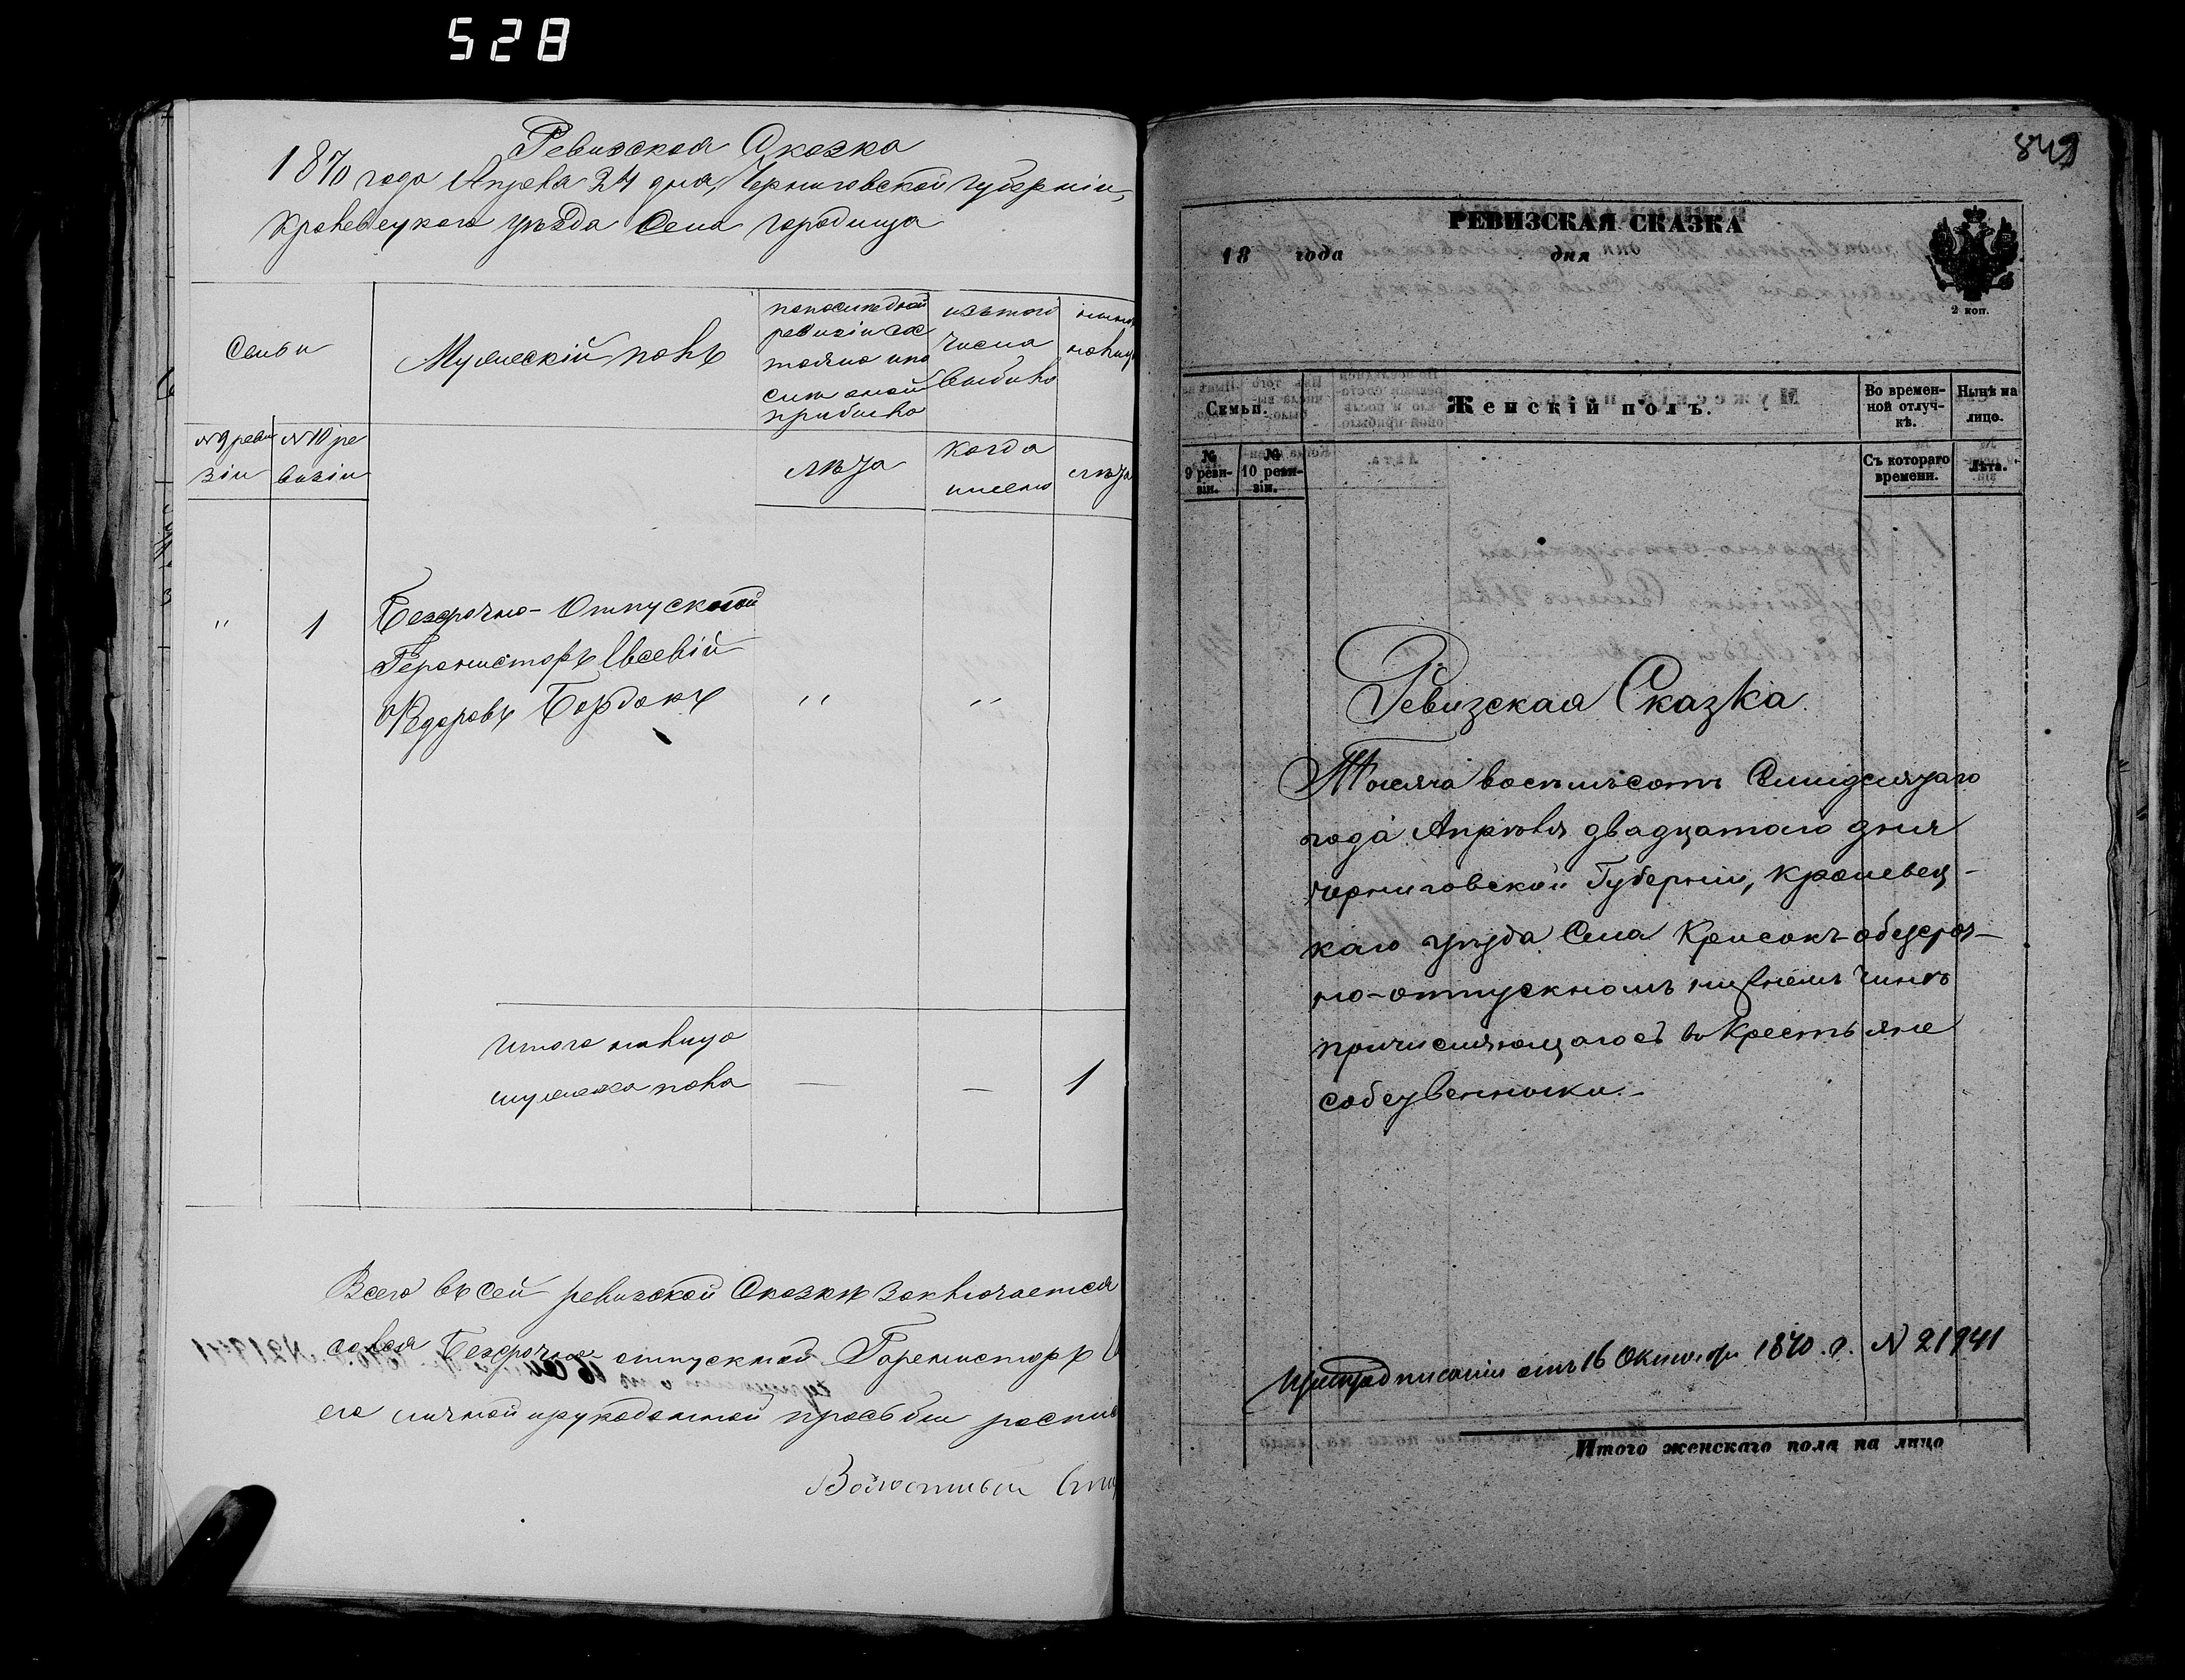 528
Ревизская Сказка
1870 года Апреля 24 дня, Черниговской губерніи,
Кролевецкого уѣзда Села Городища
Семьи
Мужескій полъ
по последней
ревизіи сос
тояло и по
слѣ оной
прибыло
изътого
числа
выбыло
№ 9 реви
зіи
№ 10 ре
визіи
лѣта
когда
именно
лѣта
" 1 Безсрочно-Отпускной
Евсевій
Федоровъ Бордакъ " "
Итого налицо
мужеска пола — — 1
Всего въ сей ревизской Сказкѣ заключается
Безсрочно отпускной
его личной рукоданной просьбы
Волостный
849
РЕВИЗСКАЯ СКАЗКА
18 года дня
2 коп.
Семьи.
Женскій полъ.
Во времен-
ной отлуч-
кѣ.
Нынѣ на
лицо.
№
9 реви-
зіи.
№
10 реви-
зіи.
Съ котораго
времени.
Лѣта.
Ревизская Сказка
Тысяча восемьсотъ Семидесятаго
года Апрѣля двадцатаго дня
Черниговской Губерніи, Кролевец-
каго уѣзда Села Крисокъ обезсроч-
но-отпускномъ нижнемъ чинѣ
причисляющагося въ крестьяне
собственники.-
отъ 16 Октября 1870 г. N 21941
Итого женскаго пола на лицо